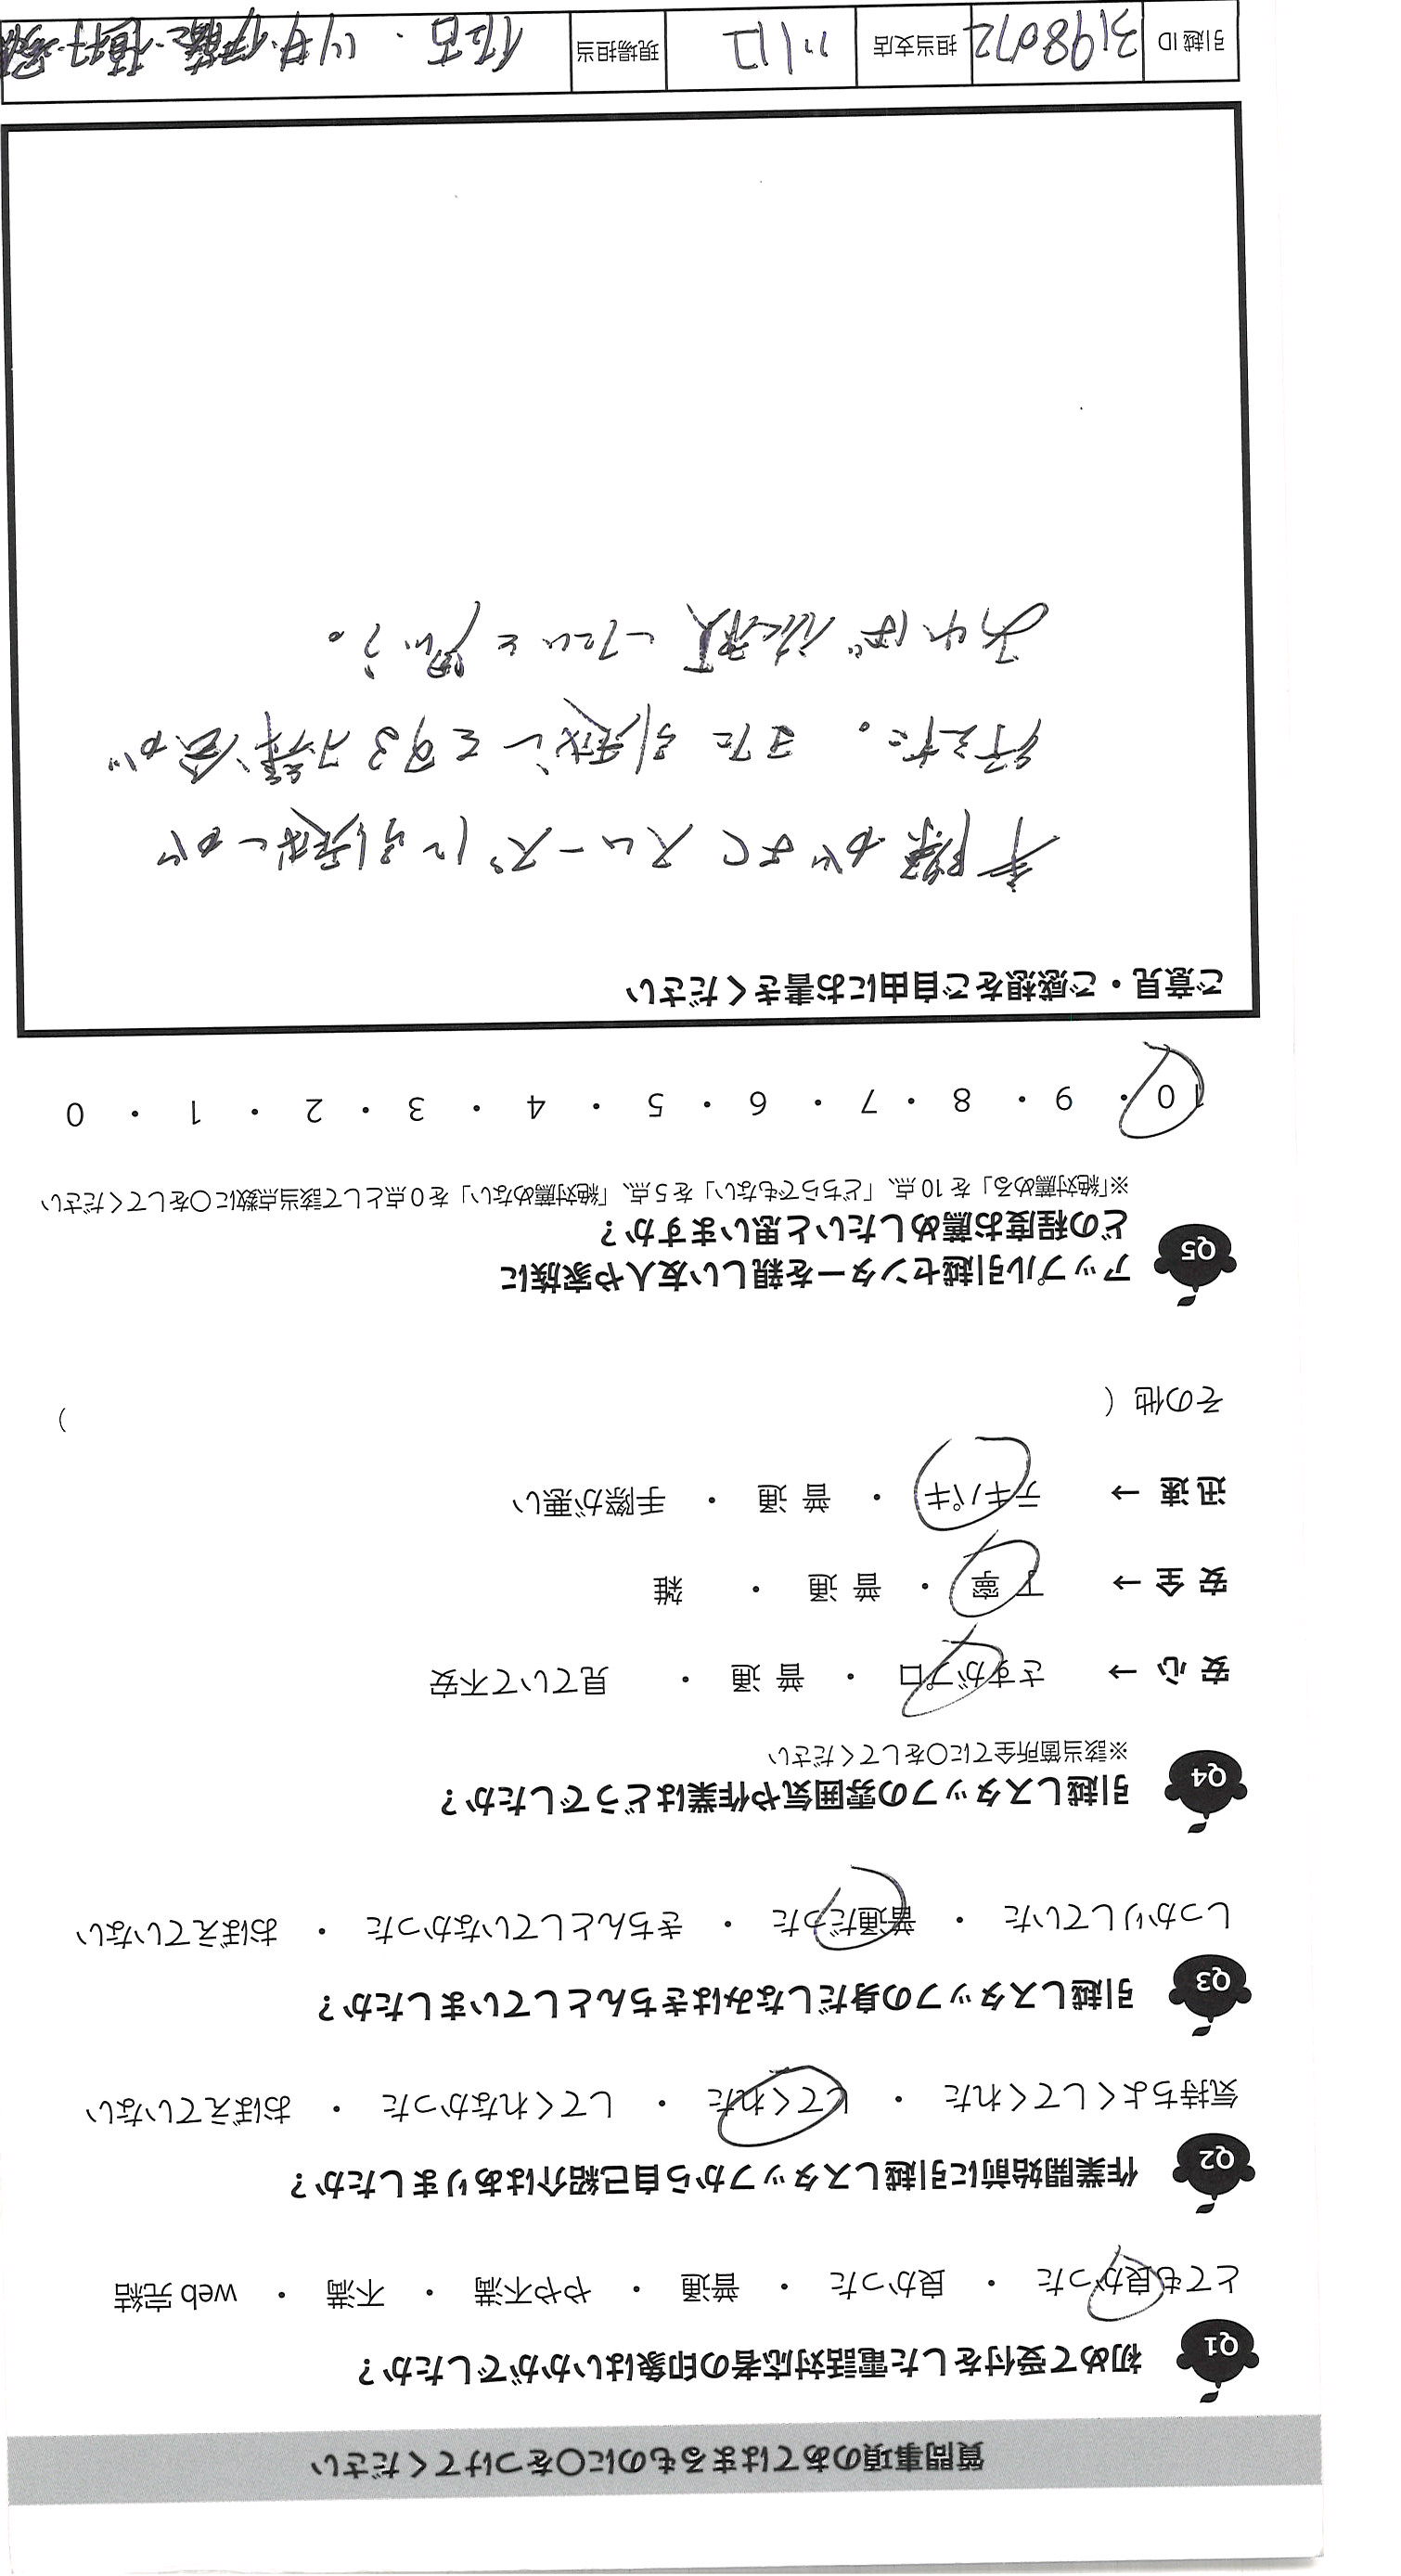 質問事項のあてはまるものに○をつけてください
Q1 初めて受付をした電話対応者の印象はいかがでしたか？
とても良かった ・ 良かった ・ 普通 ・ やや不満 ・ 不満 ・ web 完結
Q2 作業開始前に引越しスタッフから自己紹介はありましたか？
気持ちよくしてくれた ・ してくれた ・ してくれなかった ・ おぼえていない
Q3 引越しスタッフの身だしなみはきちんとしていましたか？
しっかりしていた ・ 普通だった ・ きちんとしていなかった ・ おぼえていない
Q4 引越しスタッフの雰囲気や作業はどうでしたか？
※該当箇所全てに○をしてください
安心 → さすがプロ ・ 普通 ・ 見ていて不安
安全 → 丁寧 ・ 普通 ・ 雑
迅速 → テキパキ ・ 普通 ・ 手際が悪い
その他（ ）
Q5 アップル引越センターを親しい友人や家族に
どの程度お薦めしたいと思いますか？
※「絶対薦める」を 10 点、「どちらでもない」を 5 点、「絶対薦めない」を 0 点として該当点数に○をしてください
10 ・ 9 ・ 8 ・ 7 ・ 6 ・ 5 ・ 4 ・ 3 ・ 2 ・ 1 ・ 0
ご意見・ご感想をご自由にお書きください
手際がよくスムーズに引越しが
行えた。また引越しをする機会が
あれば依頼したいと思う。
引越 ID 3198072 担当支店 川口 現場担当 住吉・川井・伊藤・植村